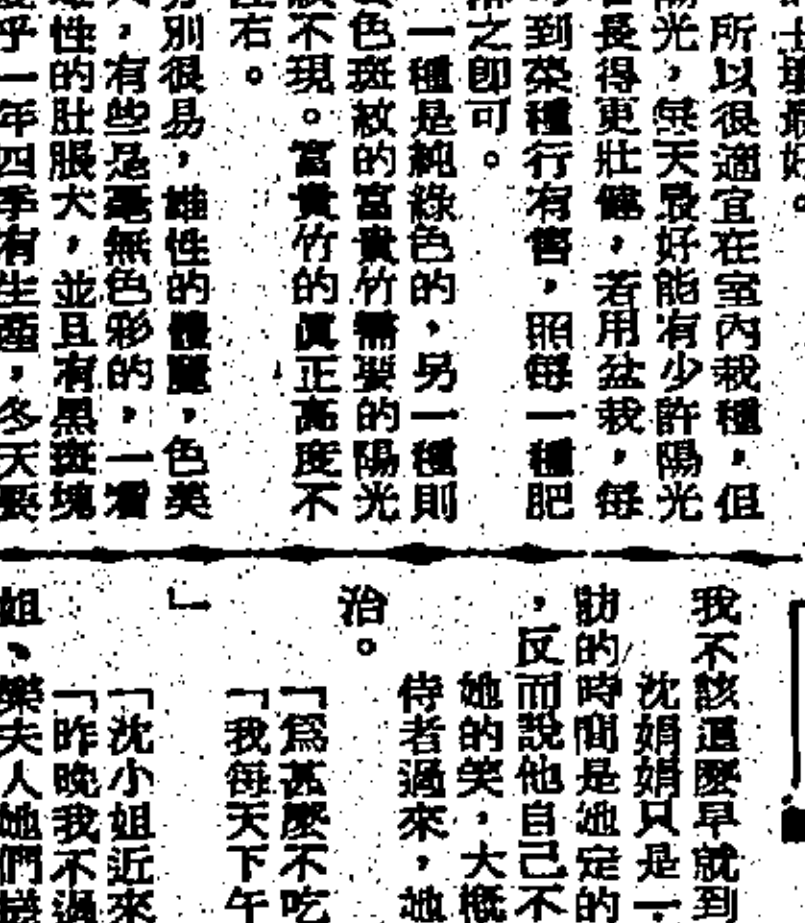 士壤最好。
所以很適宜在室內栽種，但
陽光，每天最好能有少許陽光
長得更壯健，若用盆栽，每
到菜種行有售，照每一種肥
之卽可。
一種是純綠色的，另一種則
色斑紋的富貴竹需要的陽光
不現。富貴竹的眞正高度不
右。
別很易，雄性的體麗，色美
，有些是毫無色彩的，一
性的肚脹大，並且有黑斑塊
乎一年四季有生產，冬天要
我不該這麼早就到
沈娟娟只是一
的時間是她定的
，反而說他自己不
她的笑，大概
侍者過來，她
治。
「爲甚麼不吃
「我每天下午
」
「沈小姐近來
「昨晚我不過
姐、樂夫人她們